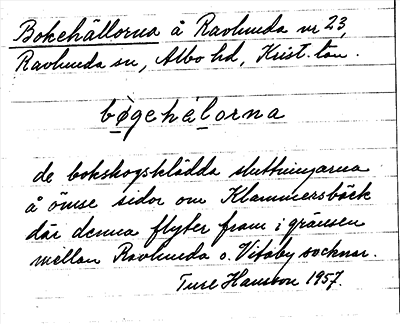 Bokehällorna å Ravlunda nr 23,
Ravlunda sn, Albo hd, Krist. län.
bø̀gehálorna
de bokskogsklädda sluttningarna
å ömse sidor om Klammersbäck
där denna flyter fram i gränsen
mellan Ravlunda o. Vitaby socknar.
Ture Hansson 1957.